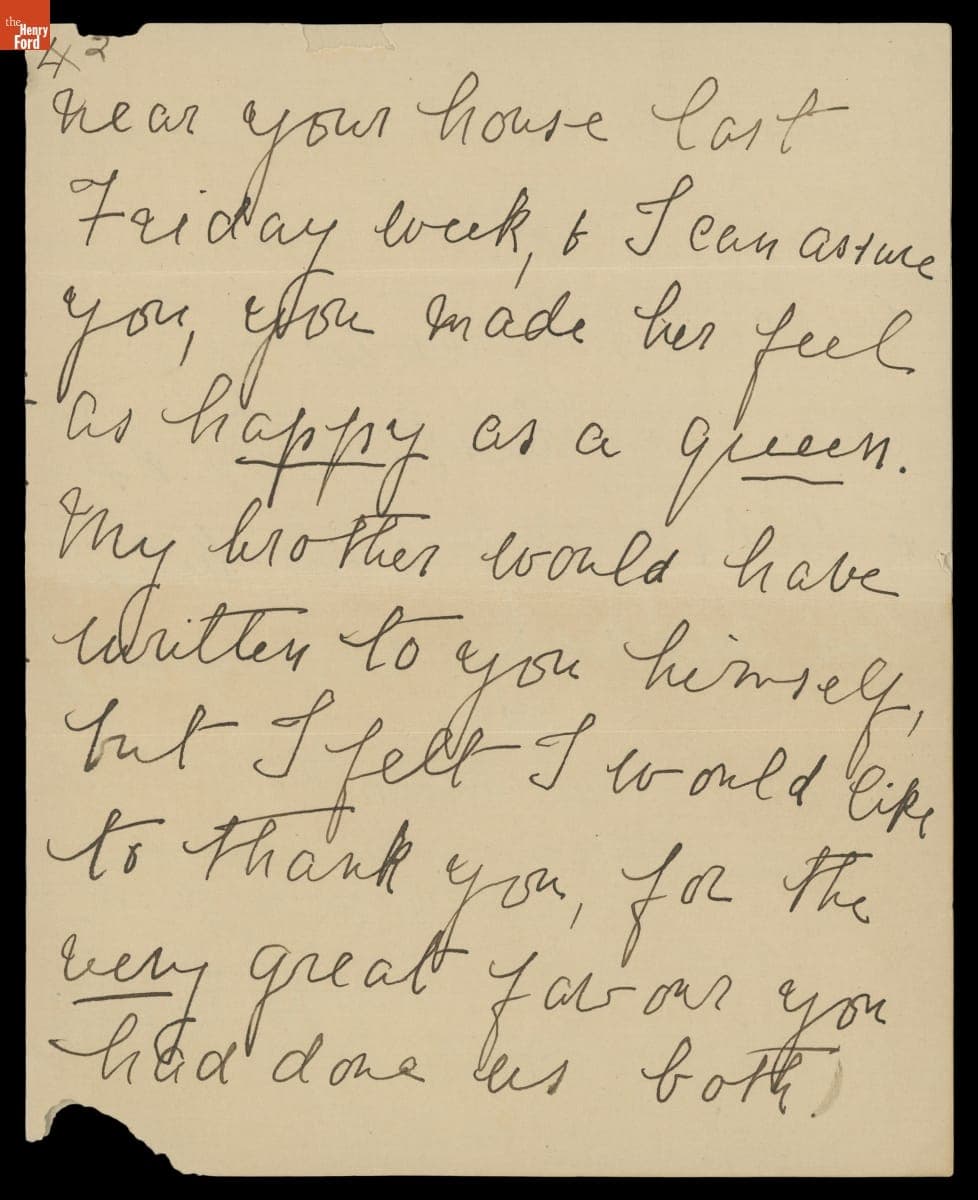 the
Henry
Ford
42
near your house last
Friday week, & I can assure
you, you made her feel
as happy as a queen.
My brother would have
written to you himself,
but I felt I would like
to thank you, for the
very great favour you
had done us both.